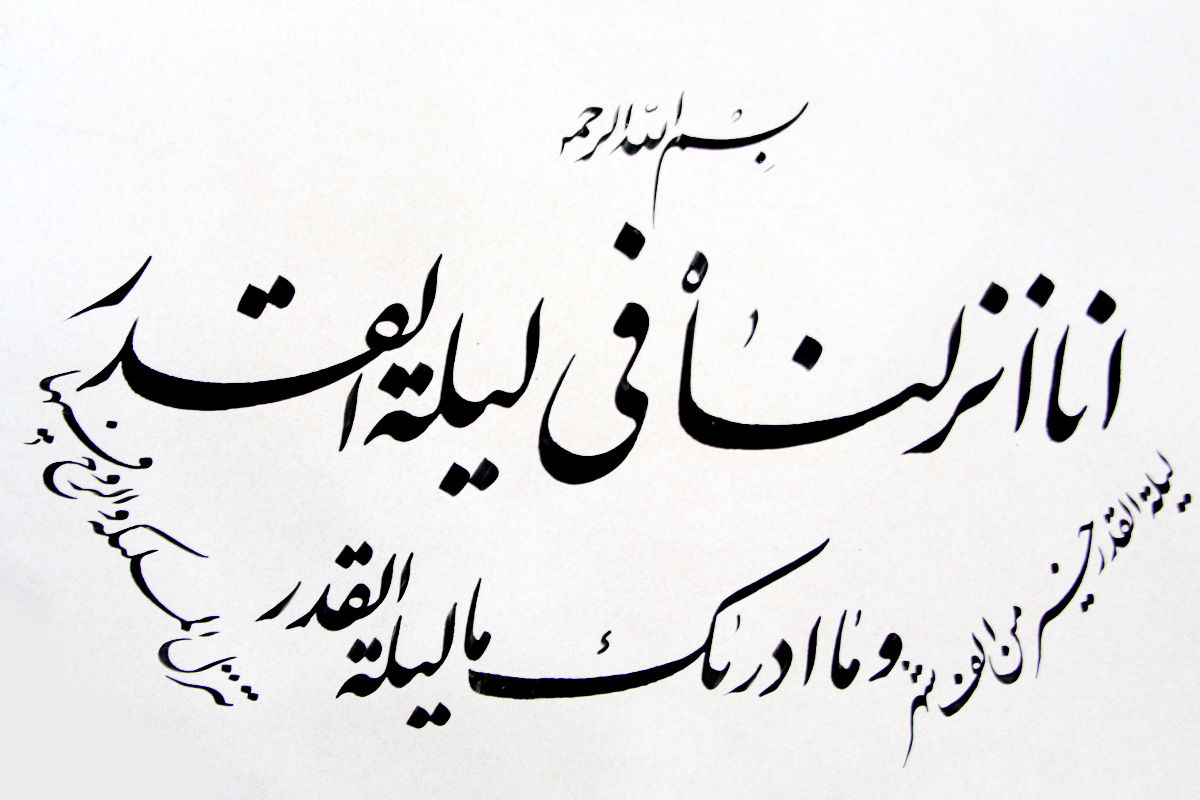 بسم الله الرحمن
انا انزلناه فی لیلة القدر
و ما ادرىٰك ما لیلة القدر
لیلة القدر خیر من الف شهر
تنزل الملئکه والروح فیها